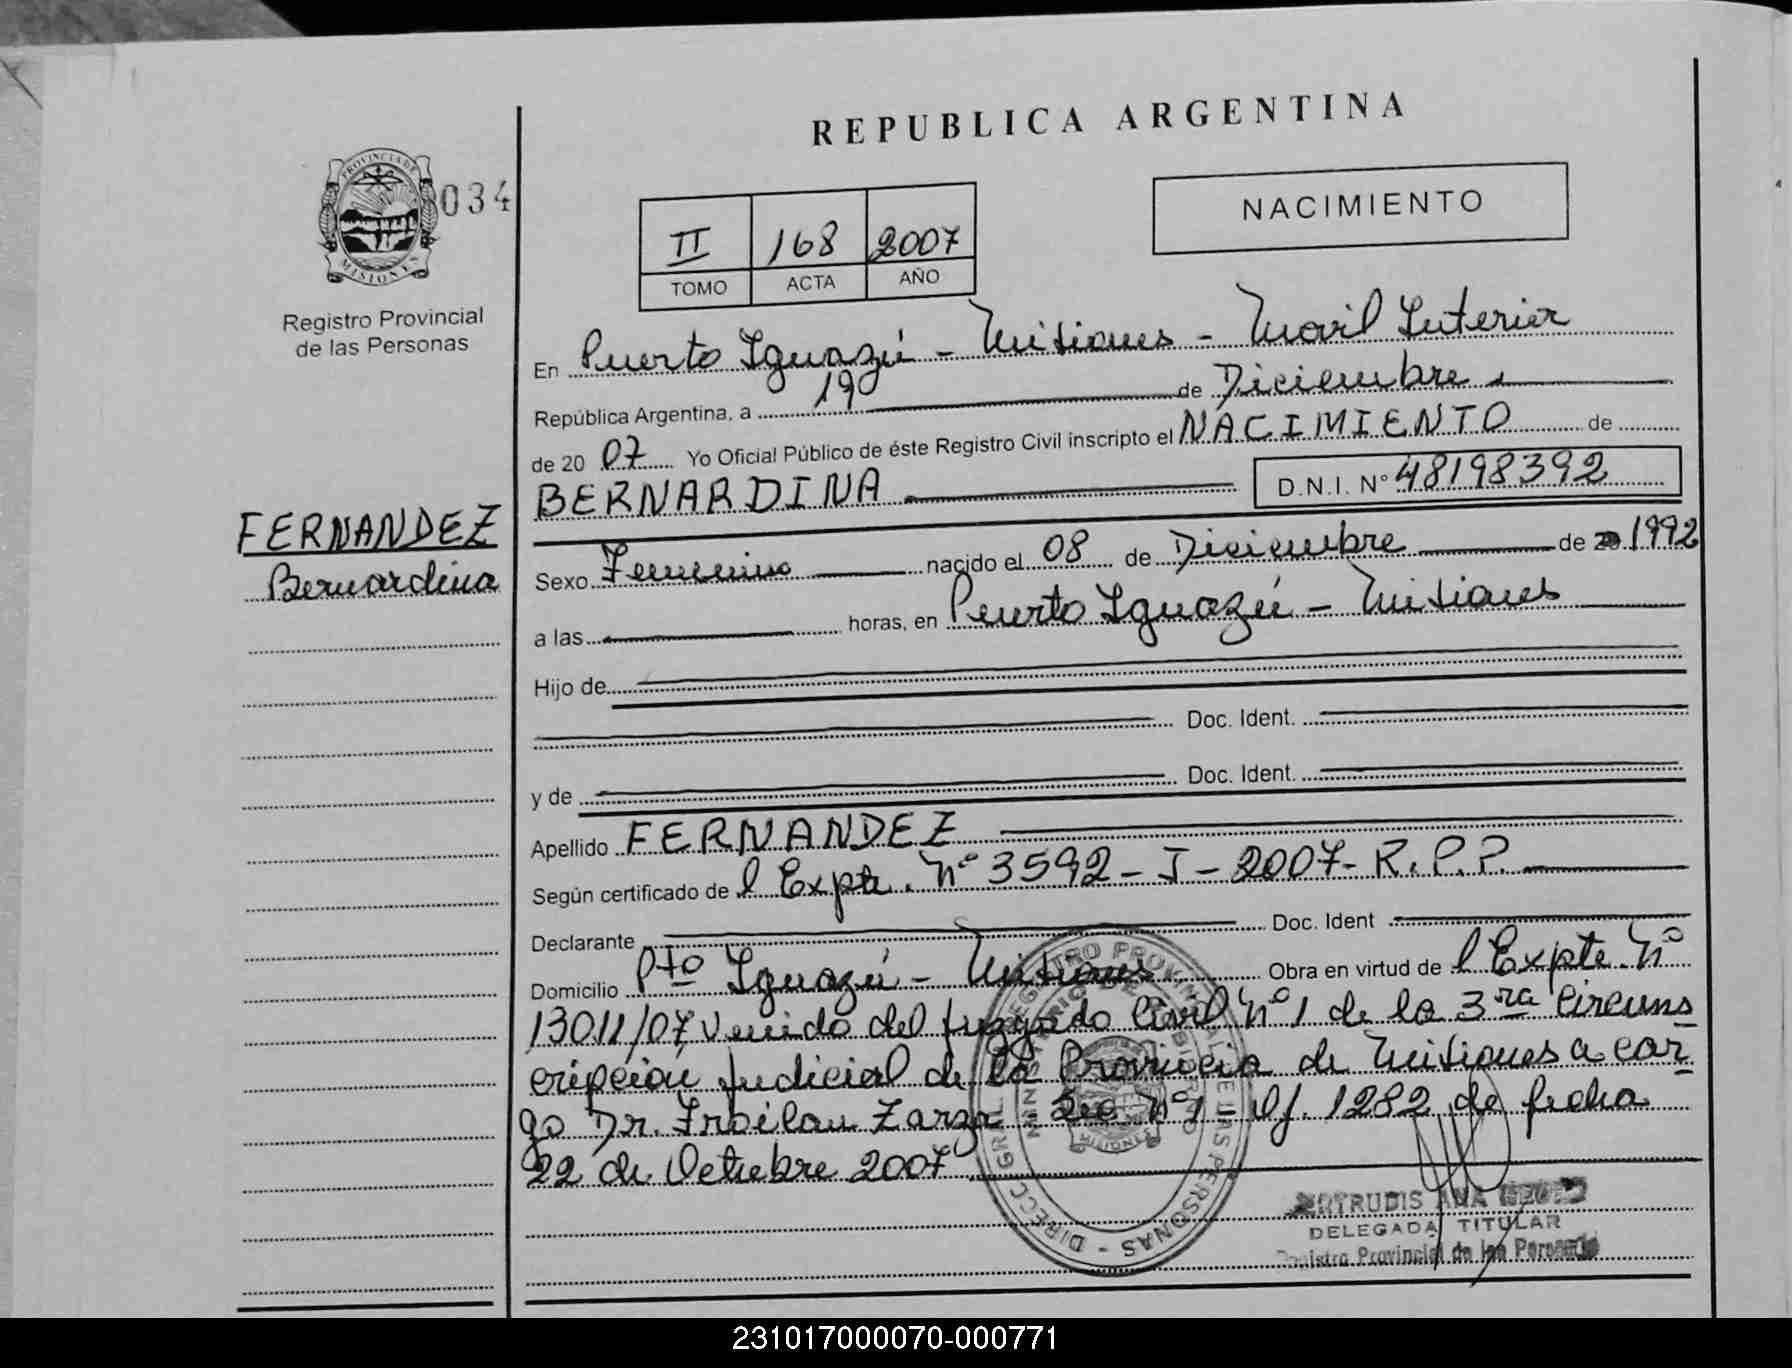 REPUBLICA ARGENTINA
PROVINCIA DE
MISIONES
034
Registro Provincial
de las Personas
II 168 2007
TOMO ACTA AÑO
NACIMIENTO
En Puerto Iguazú - Misiones - Movil Interior
República Argentina, a 19 de Diciembre
de 20 07 Yo Oficial Público de éste Registro Civil inscripto el NACIMIENTO de
BERNARDINA D.N.I. Nº 48198392
FERNANDEZ
Bernardina
Sexo Femenino nacido el 08 de Diciembre de 20 1992
a las horas, en Puerto Iguazú - Misiones
Hijo de
Doc. Ident.
y de Doc. Ident.
Apellido FERNANDEZ
Según certificado de l Expte. Nº 3592 - J - 2007 - R.P.P.
Declarante Doc. Ident
Domicilio Pto Iguazú - Misiones Obra en virtud de l Expte. Nº
13011/07, venido del Juzgado Civil Nº 1 de la 3ra Circuns
cripcion Judicial de la Provincia de Misiones a car
go Dr. Froilan Zarza - Sec Nº 1 - Of. 1282 de fecha
22 de Octubre 2007
GERTRUDIS ANA
DELEGADA TITULAR
Registro Provincial de las Personas
231017000070-000771